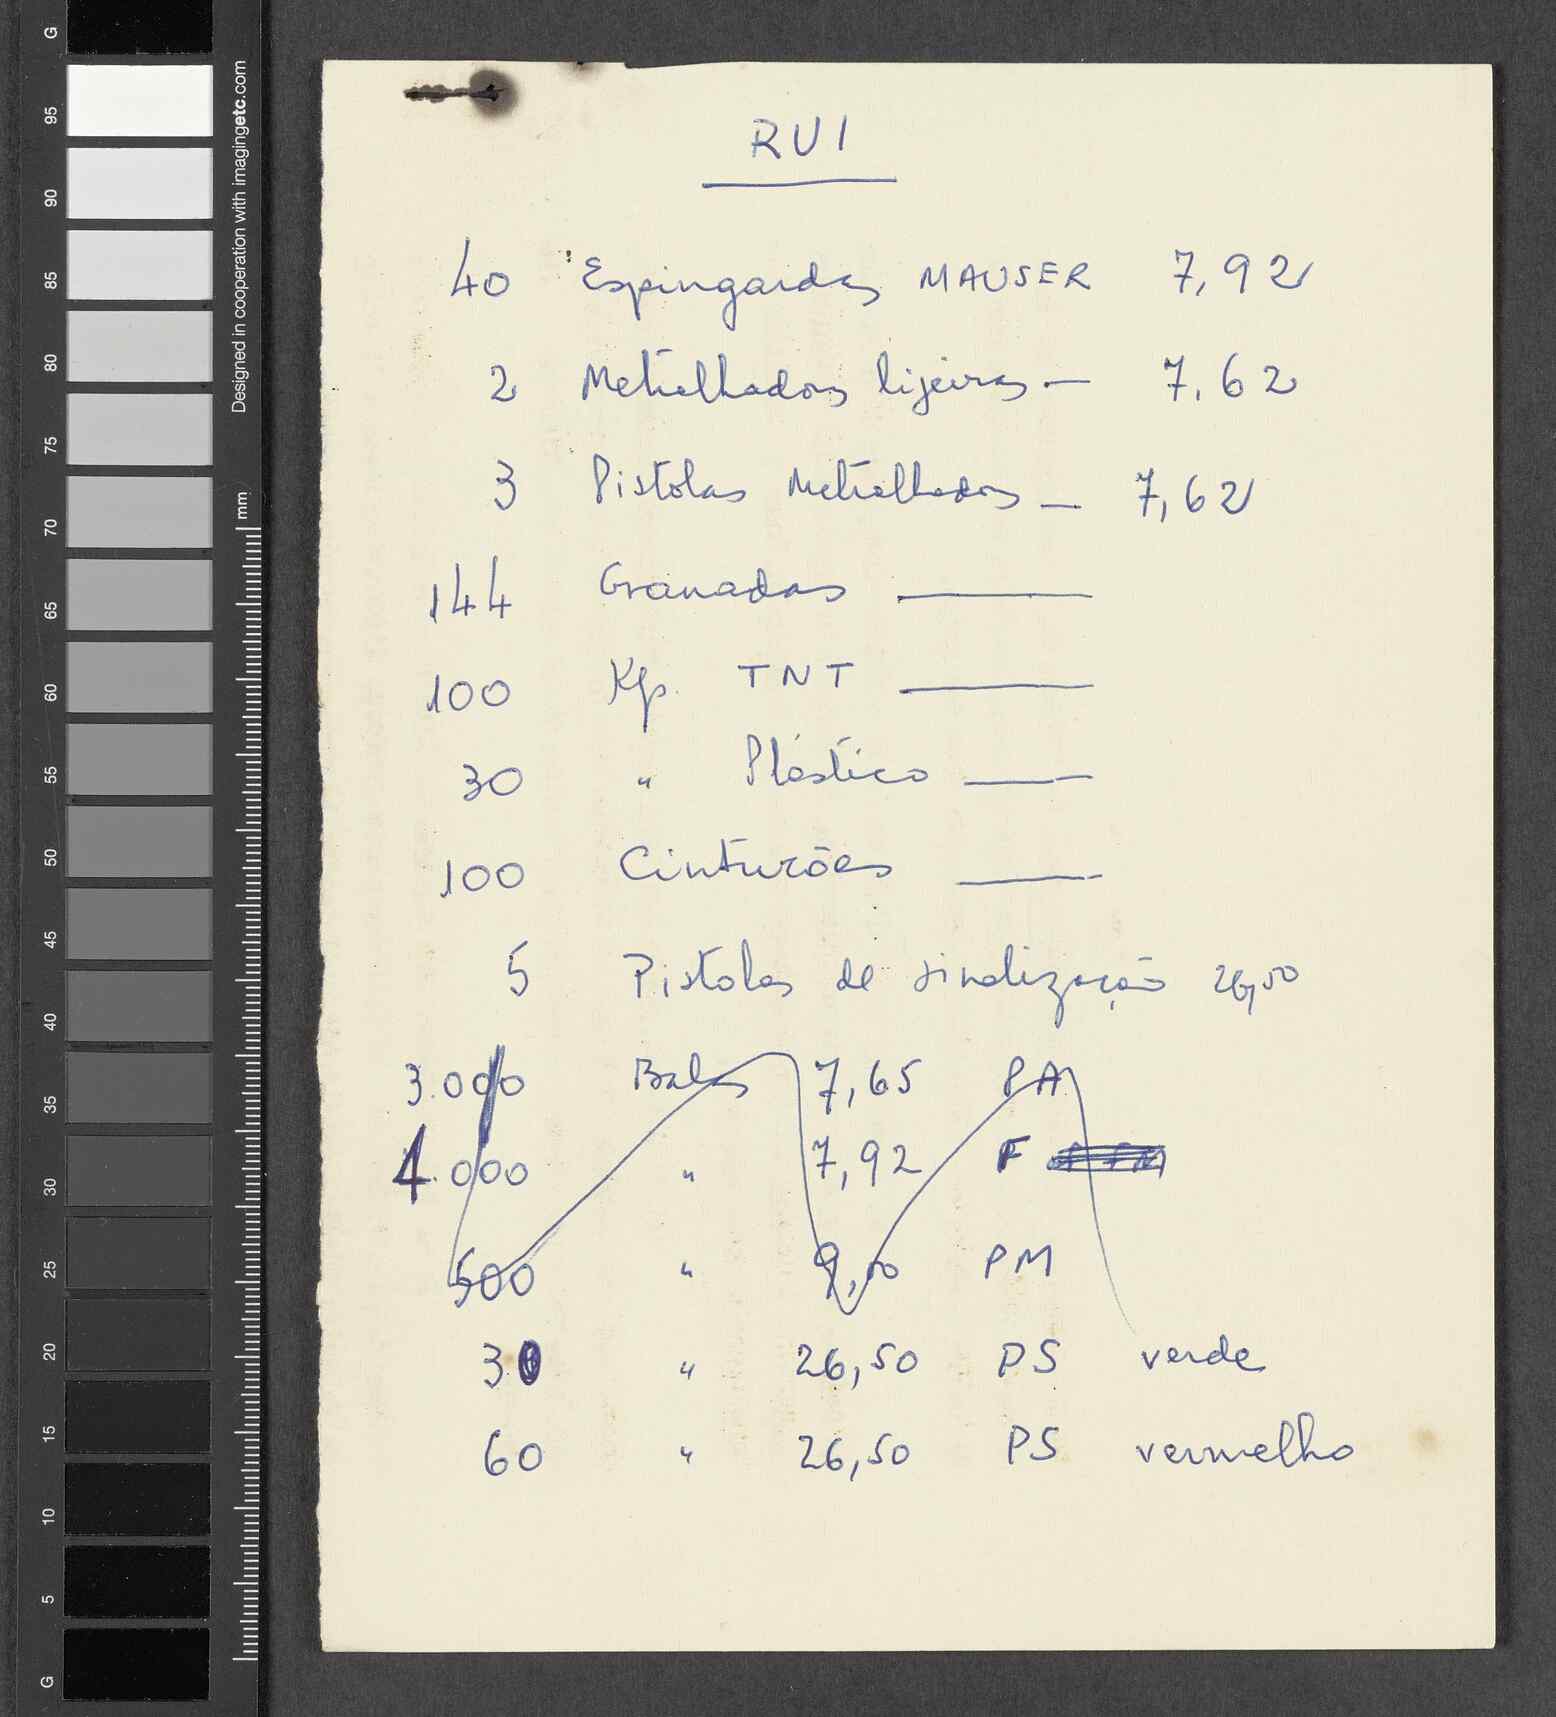 RUI
40 Espingardas MAUSER 7,92
2 Metralhadoras lijeiras — 7.62
3 Pistolas Metralhadoras — 7,62
144 Granadas —
100 Kgs. TNT —
30 " Plástico —
100 Cinturões —
5 Pistolas de sinalização 26,50
3.000 Balas 7,65 PA
1.000 " 7,92 F
500 " 9,00 PM
30 " 26,50 PS verde
60 " 26,50 PS vermelho
Designed in cooperation with imagingetc.com
mm
G
95
90
85
80
75
70
65
60
55
50
45
40
35
30
25
20
15
10
5
G